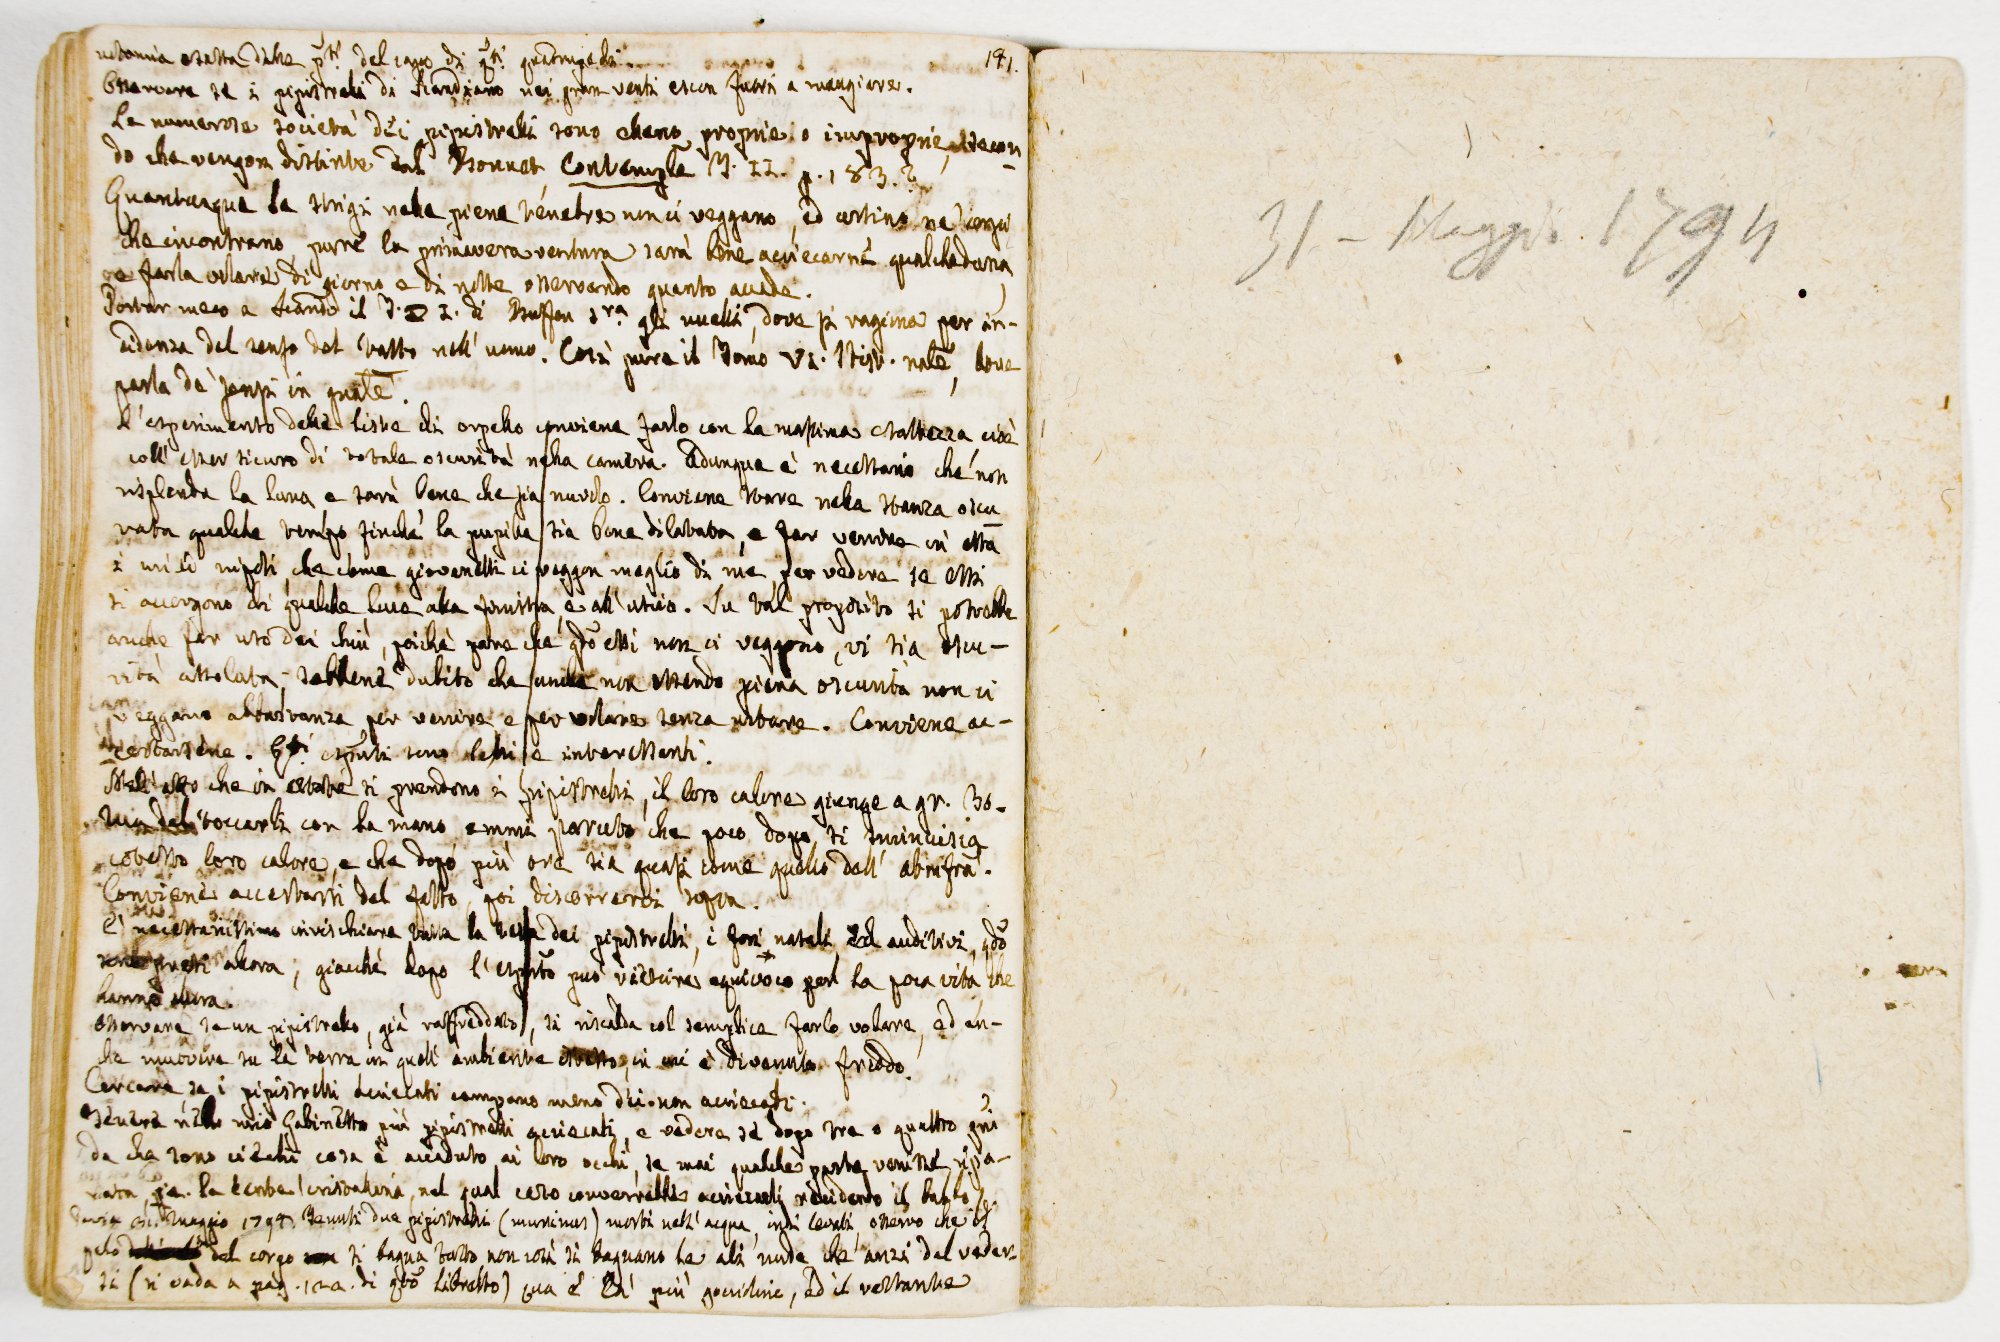 notomia esatta delle pti del capo di qti quadrupedi.
191.
Osservare se i pipistrelli di Scandiano nei gran venti escon fuori a mangiare.
Le numerose società dei pipistrelli sono elleno proprie o improprie, secon
do che vengon distinte dal Bonnet Contemple T. II. p. 183.?
Quantunque le strigi nelle piene tenebre non ci veggano, ed urtino ne' corpi
che incontrano, purre la primavera ventura sarà bene acciecarne qualcheduna,
e farla volare di giorno e di notte osservando quanto accade.
Portar meco a Scando il T. I. di Buffon sra gli uccelli, dove si ragiona per in-
cidenza del senso del tatto nell' uomo. Così pure il Tomo VI. Stor. nale, dove
parla de' sensi in gnle.
L'esperimento delle liste di orpello conviene farlo con la massima esattezza cioè
coll' esser sicuro di totale oscurità nella camera. Adunque è necessario che non
risplenda la luna e sarà bene che sia nuvolo. Conviene stare nella stanza oscu
rata qualche tempo finchè la pupilla sia bene dilatata, e far venire in essa
i miei nipoti, che come giovanetti ci veggon meglio di me, per vedere se essi
si accorgono di qualche luce alla finestra, e all' uscio. Su tal proposito si potrebbe
anche far uso dei chiù, poichè pare che qdo essi non ci veggono, vi sia oscu-
rità assoluta; sebbene dubito che anche non essendo piena oscurità non ci
veggano abbastanza per venire e per volare senza urtare. Conviene ac-
certarsene. Qti esprti sono belli e interessanti.
Nell' atto che in estate si prendono i pipistrelli, il loro calore giunge a gr. 30.
Ma dal toccarli con la mano emmi paruto che poco dopo si sminuisca
cotesto loro calore, e che dopo più ore sia quasi come quello dell' atmosfra.
Conviene accertarsi del fatto, poi discorrerci sopra.
È necessarissimo invischiare tutta la testa dei pipistrelli, i fori natali, ed auditivi, qdo
sono presi allora; giacchè dopo l'esprto può riescire equivoco per la poca vita che
hanno allora.
Osservare se un pipistrello, già raffreddato, si riscalda col semplice farlo volare, ed an-
che muovere su la terra in quell' ambiente stesso, in cui è divenuto freddo.
Cercare se i pipistrelli acciecati campano meno dei non acciecati.
Tenere nello mio Gabinetto più pipistrelli acciecati, e vedere se dopo tre o quattro gni
da che sono ciechi cosa è accaduto ai loro occhi, se mai qualche parte venisse ripa-
rata, p.e. la lente cristallina, nel qual caso converrebbe acciecarli recidendo il bulbo.
Maggio 1794. Tenuti due pipistrelli (murinus) morti nell' acqua, indi levati, osservo che il
pelo del corpo si bagna tutto, non così si bagnano le ali nude che anzi dal veder-
si (si vada a pag. 122. di qto Libretto) qua e là più goccioline, ed il restante
31 - Maggio 1794